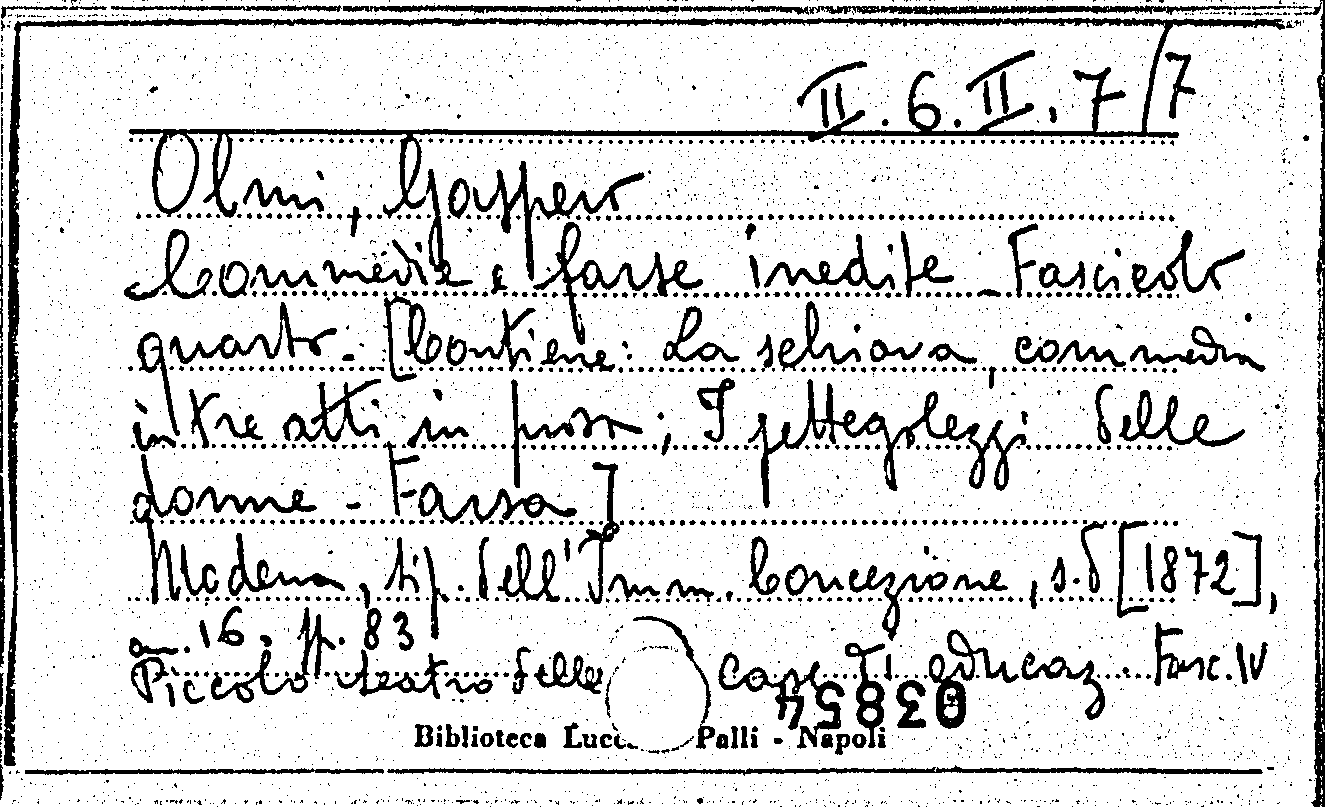 II.6.II.7/7
Olmi, Gaspero
Commedie e farse inedite - Fascicolo
quarto. - [Contiene: La schiava, commedia
in tre atti in prosa; I pettegolezzi delle
donne - Farsa]
Modena, tip. dell'Imm. Concezione, s.d [1872],
in. 16, pp. 83
Piccolo teatro delle case di educaz. Fasc. IV
03854
Biblioteca Lucc Palli - Napoli